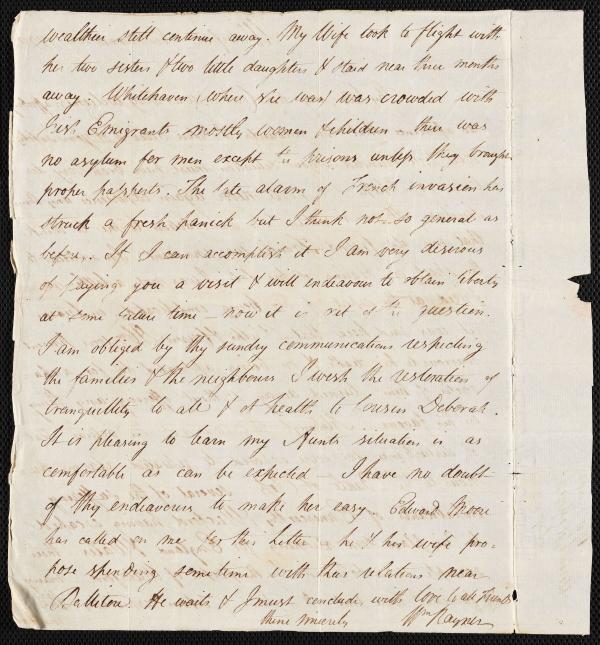 wealthier still continue away. My Wife took to flight with
her two sisters & two little daughters & staid near three months
away. Whitehaven (where she was) was crowded with
Irish Emigrants mostly women & children - there was
no asylum for men except the prisons unless they brought
proper passports. The late alarm of French invasion has
struck a fresh panick but I think not so general as
before. If I can accomplish it I am very desirous
of paying you a visit & will endeavour to obtain liberty
at some future time - now it is out of the question.
I am obliged by thy sundry communications respecting
the families & the neighbours I wish the restoration of
tranquillity to all & of health to Cousin Deborah.
It is pleasing to learn my Aunts situation is as
comfortable as can be expected - I have no doubt
of thy endeavours to make her easy - Edward Moore
has called on me for this Letter - he & his wife pro-
pose spending sometime with their relations near
He waits & I must conclude with love to all Friends
thine sincerely Wm Rayner